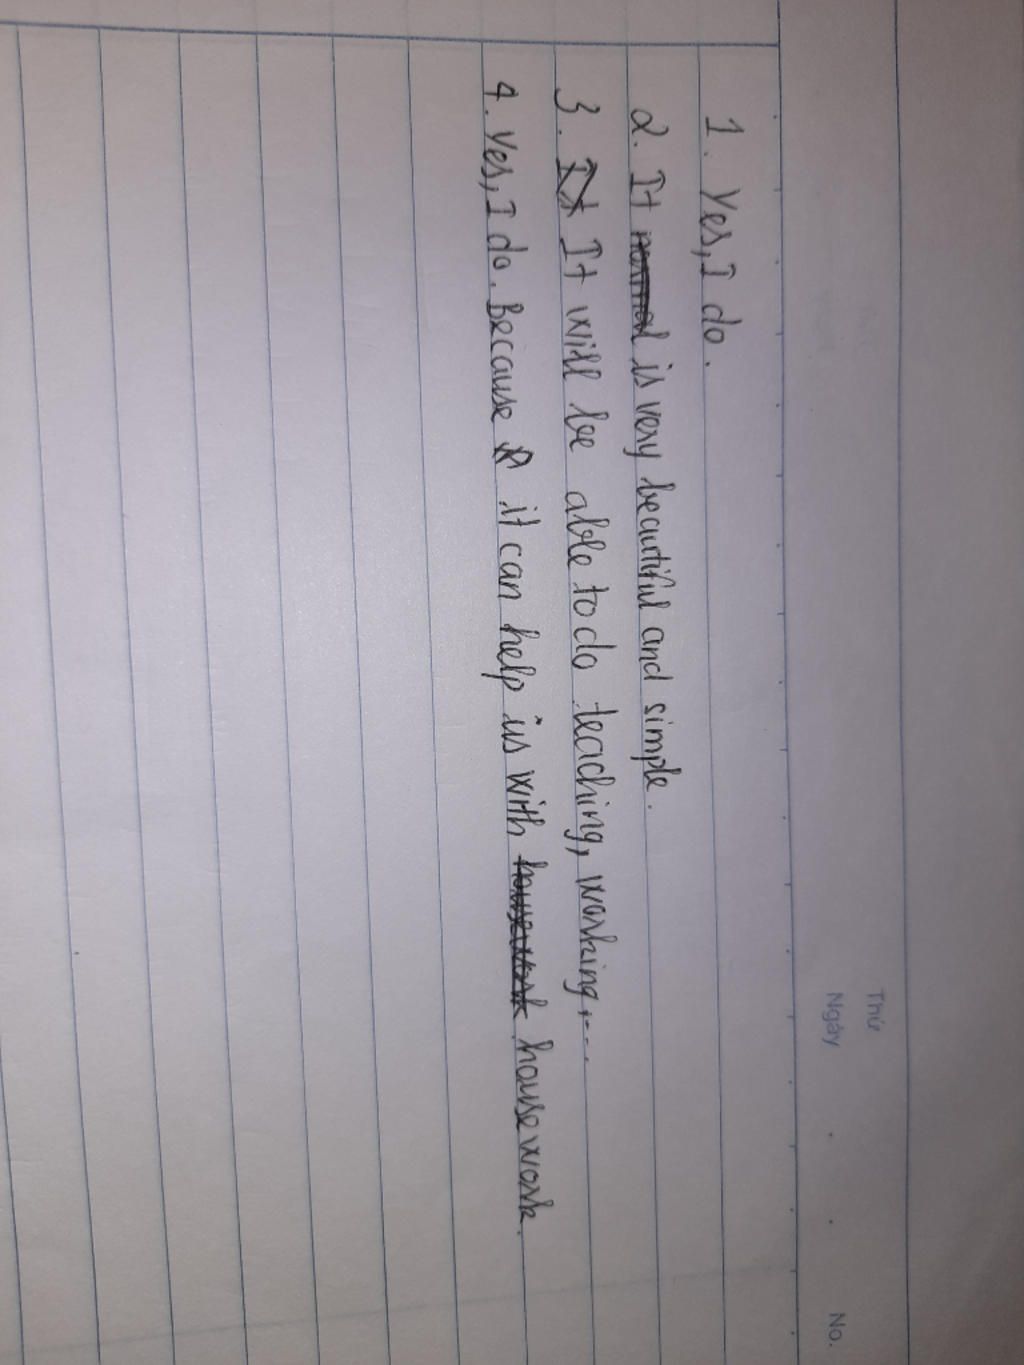 Thứ
Ngày . . No.
1. Yes, I do.
2. It is very beautiful and simple.
3. It will be able to do teaching, working,...
4. Yes, I do. Because it can help us with housework.